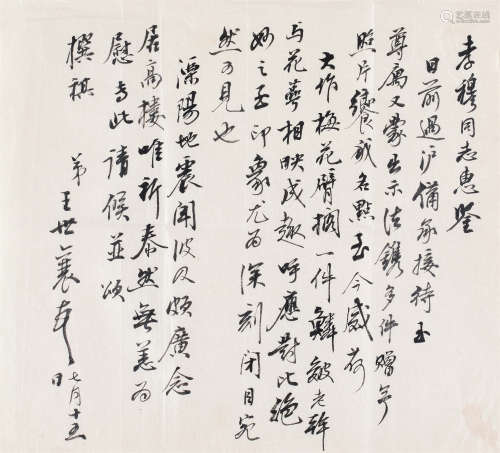 孝穆同志惠鉴
日前过沪备承接待至
尊寓又蒙出示法镌多件赠予
照片飨我名点至今感荷
大作梅花臂搁一件鳞皴老干
与花萼相映成趣呼应对比绝
妙之至印象尤为深刻闭目宛
然可见也
溧阳地震闻波及颇广念
居高楼唯祈泰然无恙为
慰专此请候并颂
撰祺
弟
王世襄奉
七月十五日